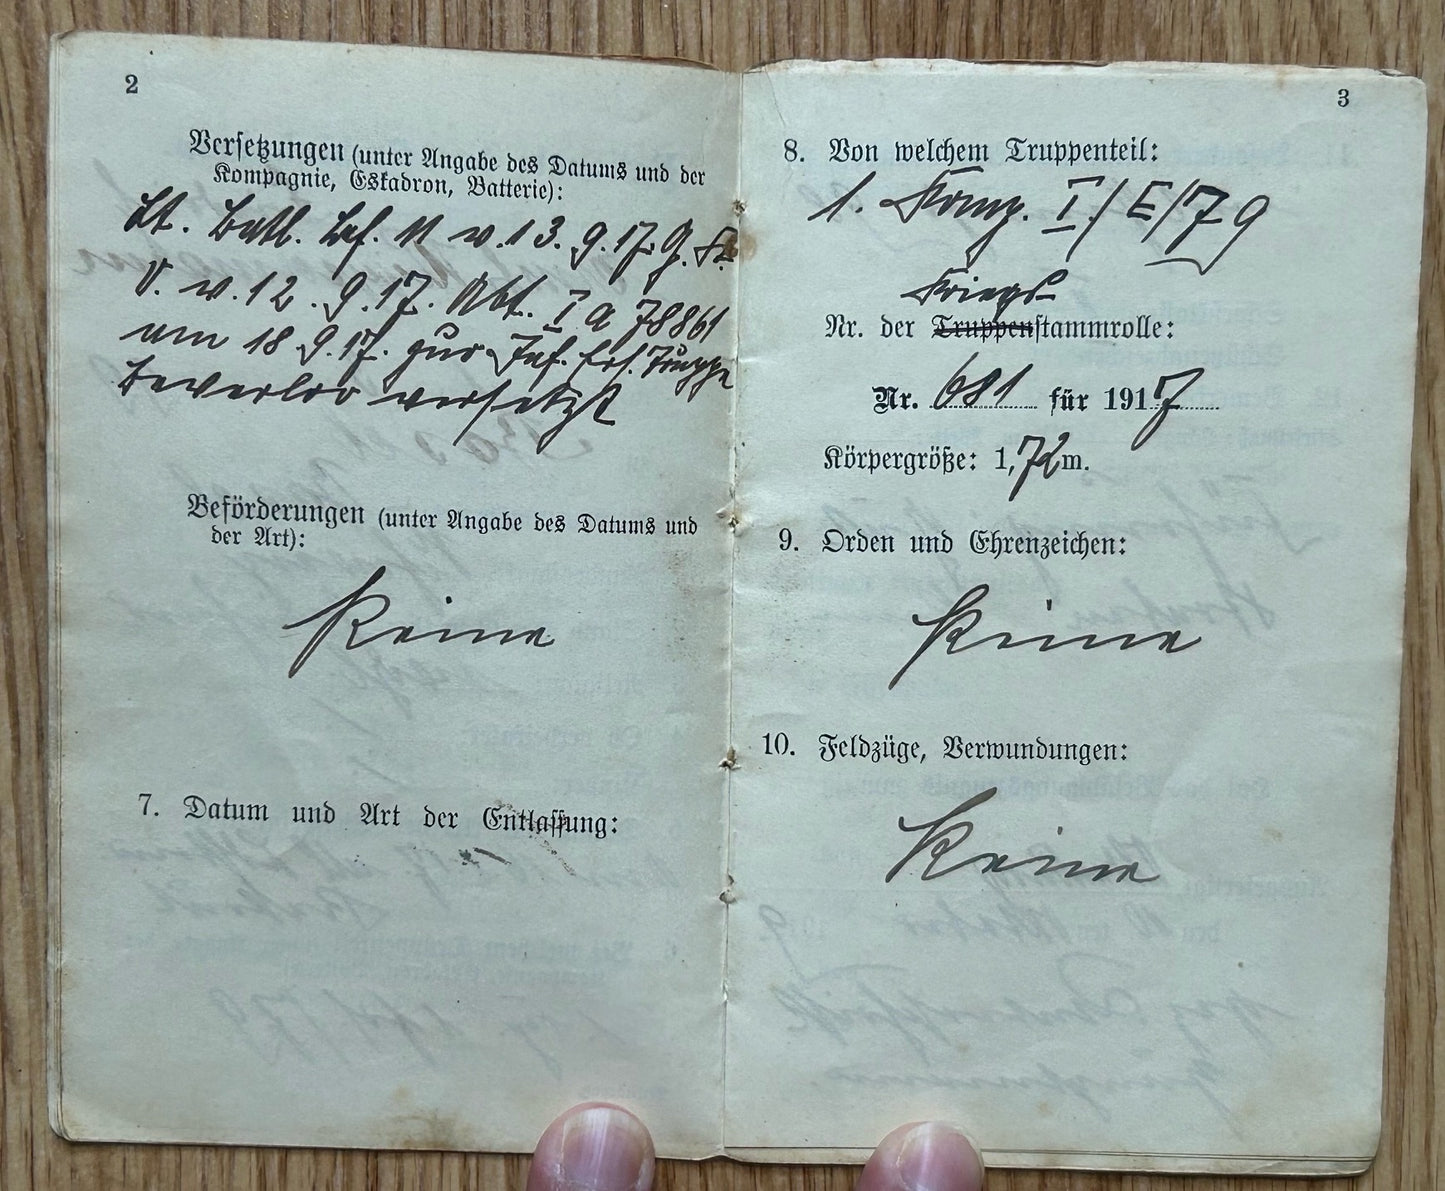 2
Versetzungen (unter Angabe des Datums und der
Kompagnie, Eskadron, Batterie):
Lt. Batl. Bef. 11 v. 13. 9. 17. G. K.
V. v. 12. 9. 17. Abt. I a 78861
am 18. 9. 17. zur Inf. Ers. Truppe
Beverloo versetzt
Beförderungen (unter Angabe des Datums und
der Art):
Keine
7. Datum und Art der Entlassung:
3
8. Von welchem Truppenteil:
1. Komp. I/E/79
Kriegs-
Nr. der Truppenstammrolle:
Nr. 681 für 1917
Körpergröße: 1,72 m.
9. Orden und Ehrenzeichen:
Keine
10. Feldzüge, Verwundungen:
Keine